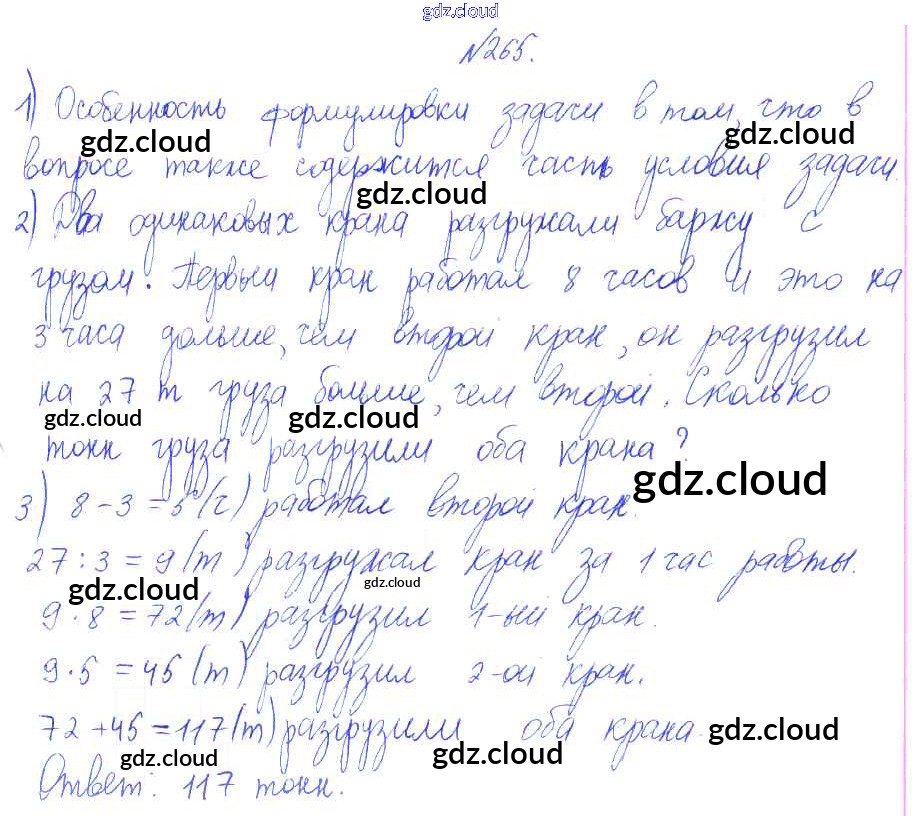 gdz.cloud
№265.
1) Особенность формулировки задачи в том, что в
gdz.cloud gdz.cloud
вопросе также содержится часть условия задачи.
gdz.cloud
2) Два одинаковых крана разгружали баржу с
грузом. Первый кран работал 8 часов и это на
3 часа дольше, чем второй кран, он разгрузил
на 27 т груза больше, чем второй. Сколько
gdz.cloud gdz.cloud
тонн груза разгрузили оба крана?
gdz.cloud
3) 8-3=5 (ч) работал второй кран.
27:3=9 (т) разгружал кран за 1 час работы.
gdz.cloud gdz.cloud
9·8=72 (т) разгрузил 1-ый кран.
9·5=45 (т) разгрузил 2-ой кран.
72+45=117 (т) разгрузили оба крана.
gdz.cloud
gdz.cloud gdz.cloud
Ответ: 117 тонн.